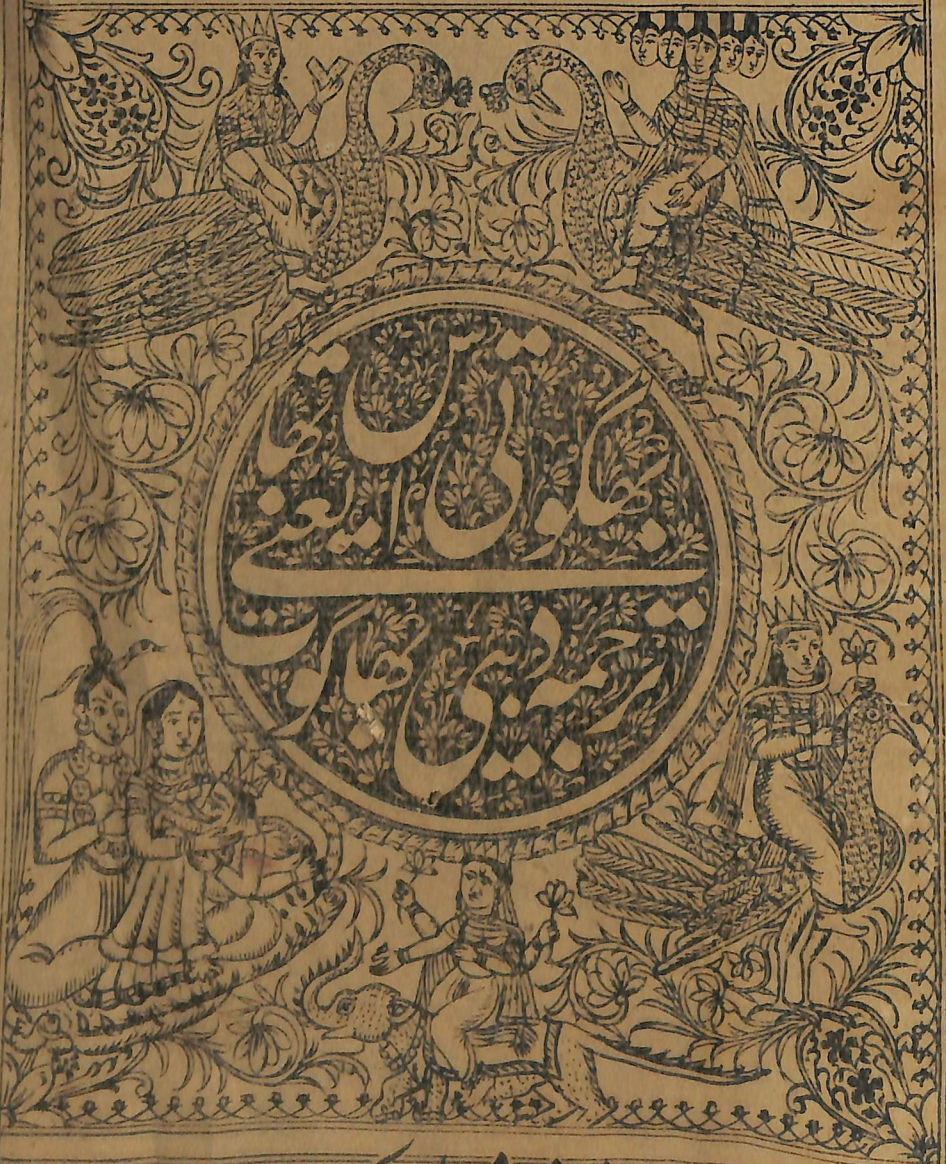 بھگوتی اتہاس یعنے
ترجمہ دیبی بھاگوت